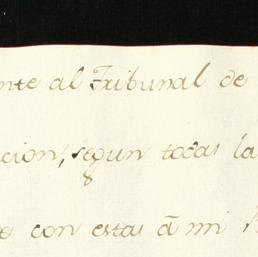 nte al Tribunal de
cion, segun todas la
e con estas ã mi